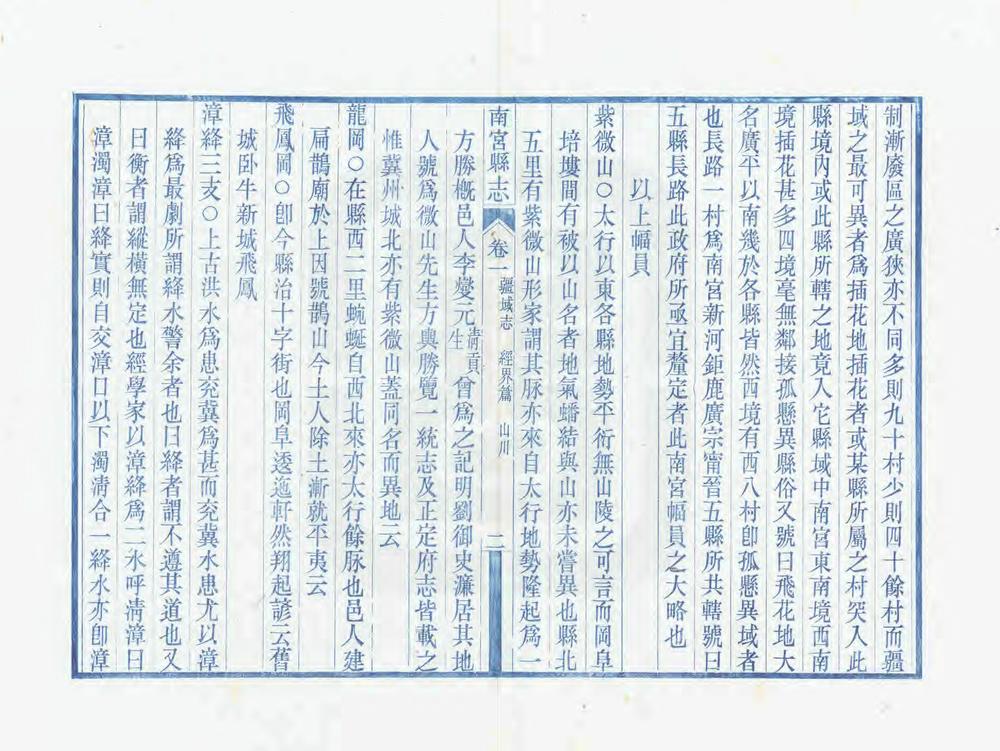 制漸廢區之廣狹亦不同多則九十村少則四十餘村而疆
域之最可異者爲插花地插花者或某縣所屬之村突入此
縣境內或此縣所轄之地竟入它縣域中南宮東南境西南
境插花甚多四境毫無鄰接孤懸異縣俗又號曰飛花地大
名廣平以南幾於各縣皆然西境有西八村卽孤懸異域者
也長路一村爲南宮新河鉅鹿廣宗甯晉五縣所共轄號曰
五縣長路此政府所亟宜釐定者此南宮幅員之大略也
以上幅員
紫微山○太行以東各縣地勢平衍無山陵之可言而岡阜
培塿間有被以山名者地氣蟠結與山亦未嘗異也縣北
五里有紫微山形家謂其脈亦來自太行地勢隆起爲一
南宮縣志 卷一 疆域志 經界篇 山川 二
方勝概邑人李燮元清貢生曾爲之記明劉御史濂居其地
人號爲微山先生方輿勝覽一統志及正定府志皆載之
惟冀州城北亦有紫微山蓋同名而異地云
龍岡○在縣西二里蜿蜒自西北來亦太行餘脈也邑人建
扁鵲廟於上因號鵲山今土人除土漸就平夷云
飛鳳岡○卽今縣治十字街也岡阜逶迤軒然翔起諺云舊
城卧牛新城飛鳳
漳絳三支○上古洪水爲患兗冀爲甚而兗冀水患尤以漳
絳爲最劇所謂絳水警余者也曰絳者謂不遵其道也又
曰衡者謂縱橫無定也經學家以漳絳爲二水呼清漳曰
漳濁漳曰絳實則自交漳口以下濁清合一絳水亦卽漳